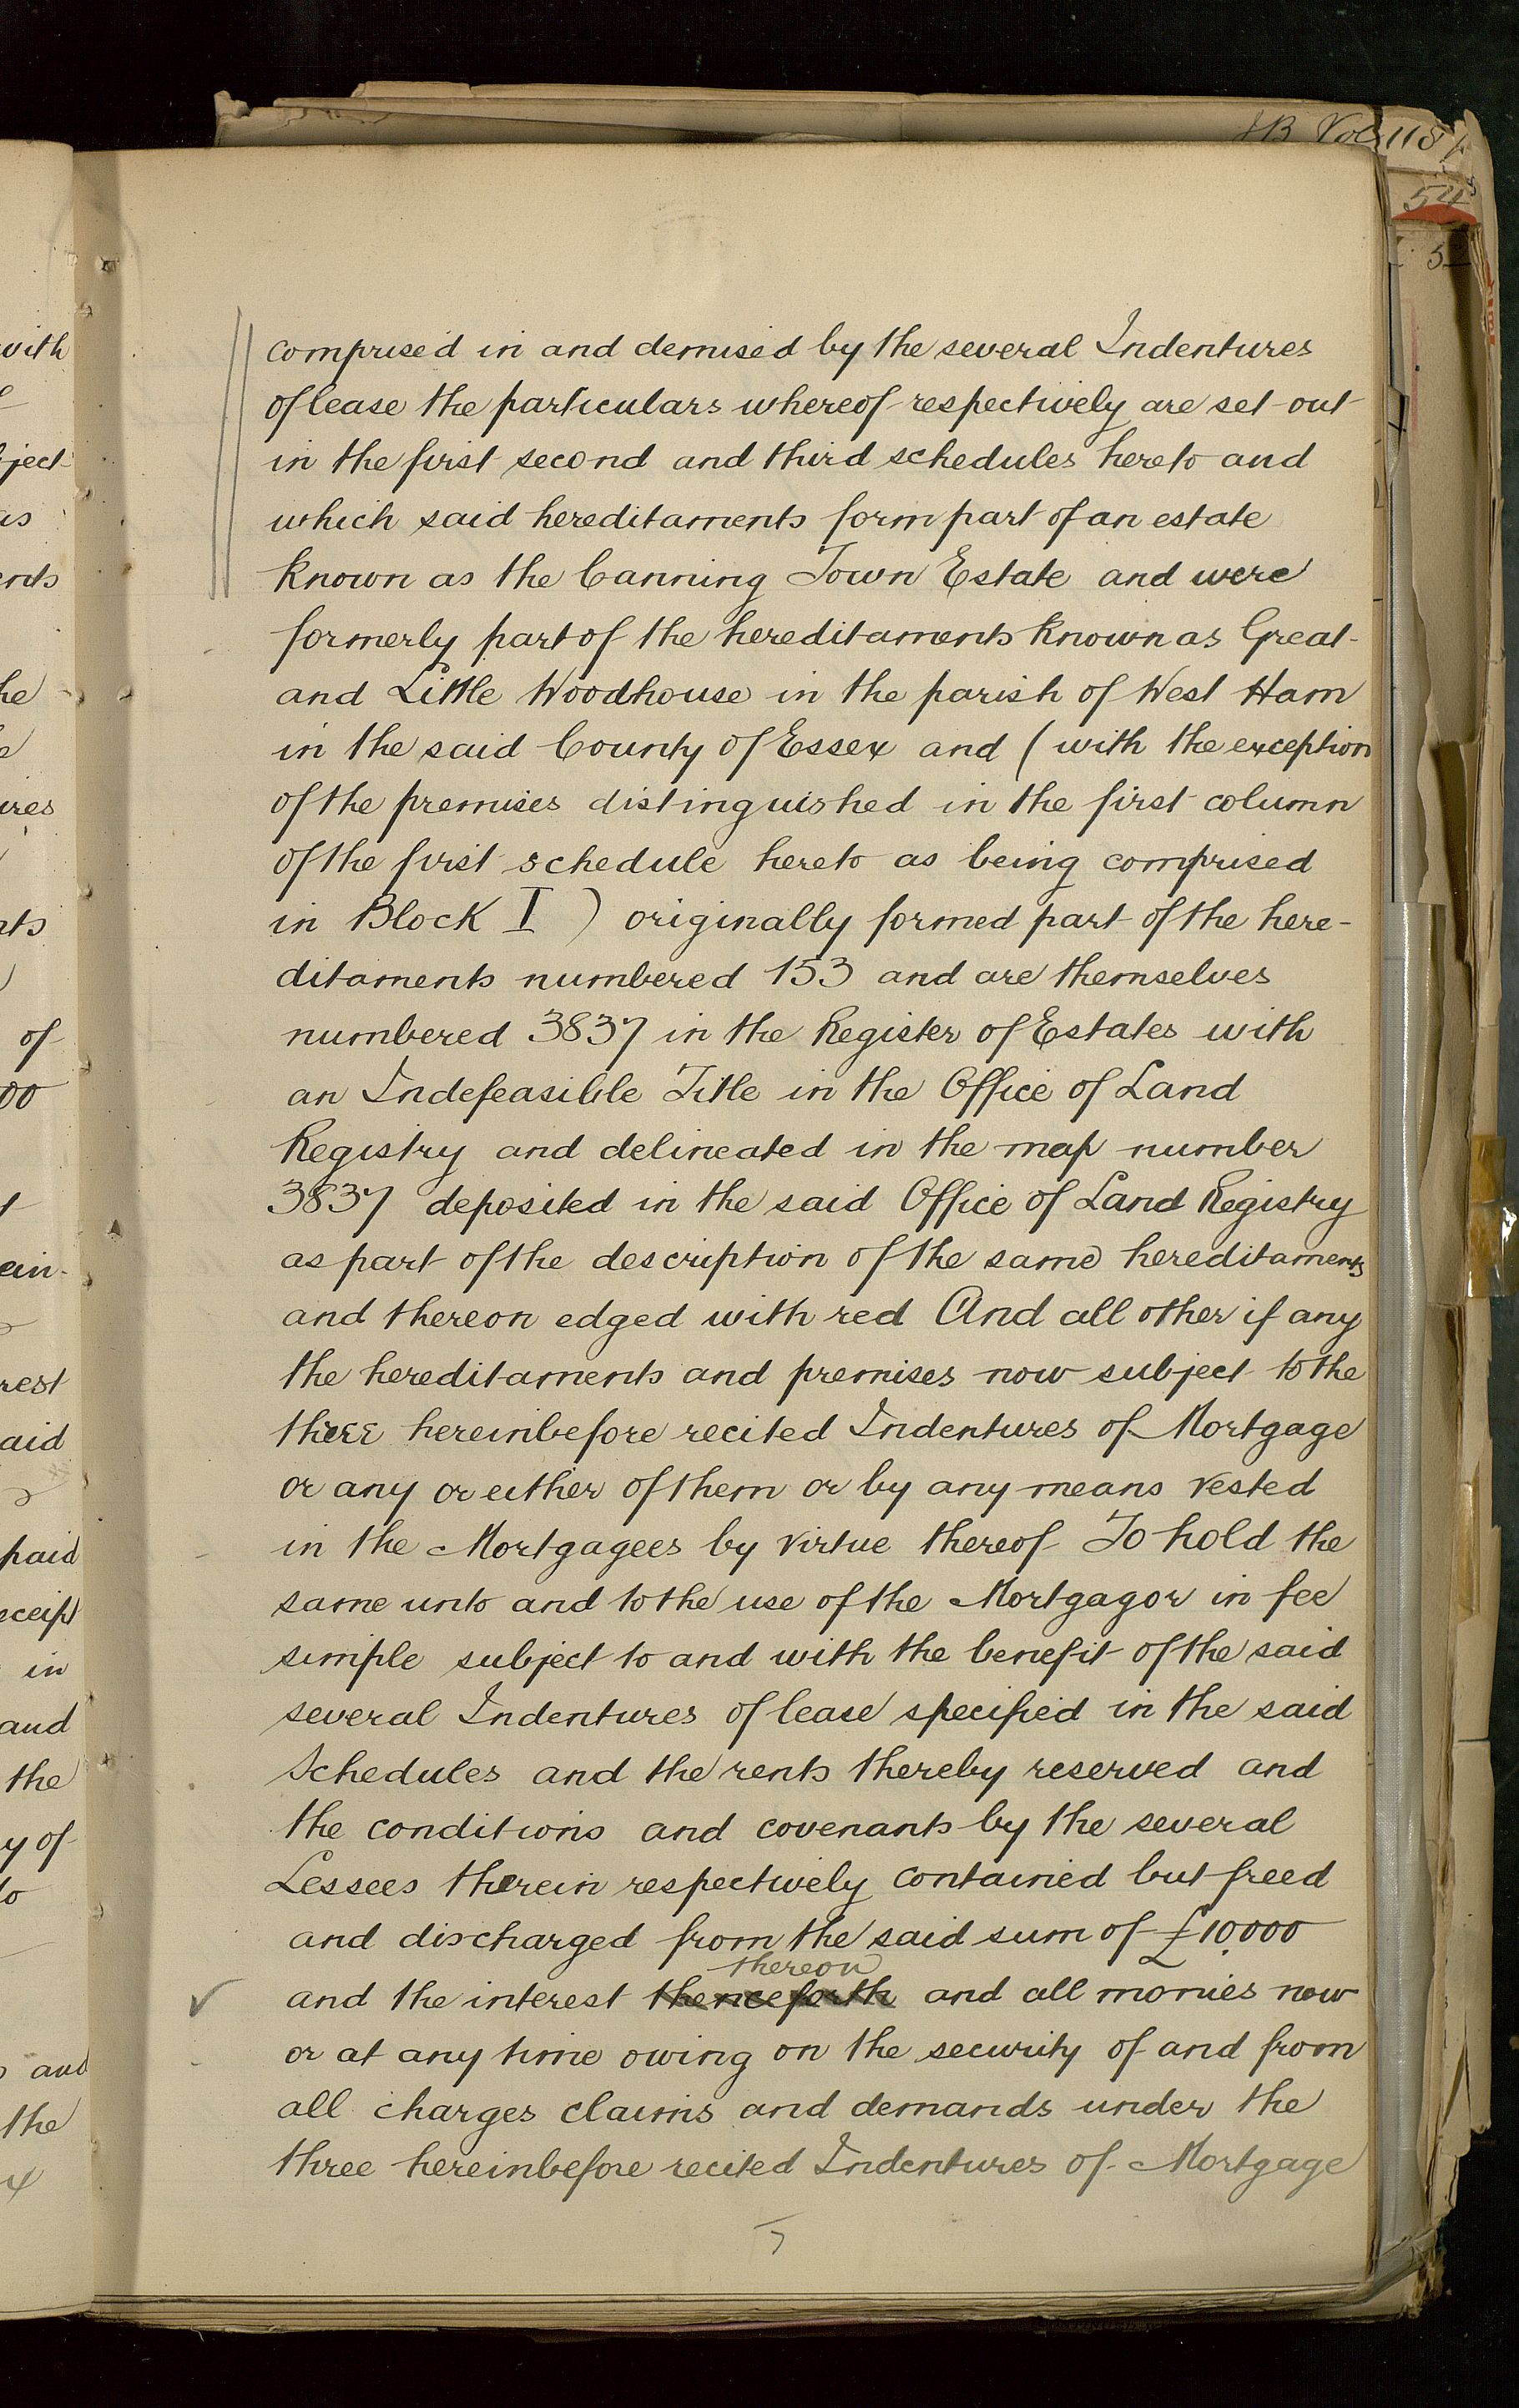 JB Vol 118
54
comprised in and demised by the several Indentures
of lease the particulars whereof respectively are set out
in the first second and third schedules hereto and
which said hereditaments form part of an estate
known as the Canning Town Estate and were
formerly part of the hereditaments known as Great
and Little Woodhouse in the parish of West Ham
in the said County of Essex and (with the exception
of the premises distinguished in the first column
of the first schedule hereto as being comprised
in Block I) originally formed part of the here-
ditaments numbered 153 and are themselves
numbered 3837 in the Register of Estates with
an Indefeasible Title in the Office of Land
Registry and delineated in the map number
3837 deposited in the said Office of Land Registry
as part of the description of the same hereditaments
and thereon edged with red And all other if any
the hereditaments and premises now subject to the
three hereinbefore recited Indentures of Mortgage
or any or either of them or by any means vested
in the Mortgagees by virtue thereof To hold the
same unto and to the use of the Mortgagor in fee
simple subject to and with the benefit of the said
several Indentures of lease specified in the said
Schedules and the rents thereby reserved and
the conditions and covenants by the several
Lessees therein respectively contained but freed
and discharged from the said sum of £10,000
thereon
and the interest thenceforth and all monies now
or at any time owing on the security of and from
all charges claims and demands under the
three hereinbefore recited Indentures of Mortgage
7